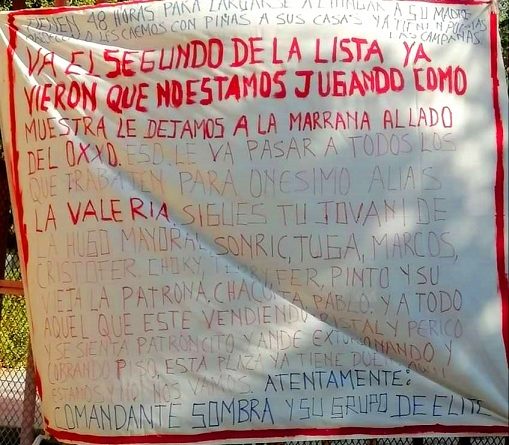 TIENEN 48 HORAS PARA LARGARSE A CHINGAR A SU MADRE
O LES CAEMOS CON PIÑAS A SUS CASAS YA TIENEN PUESTAS
LAS CAMPANAS.
VA EL SEGUNDO DE LA LISTA YA
VIERON QUE NO ESTAMOS JUGANDO COMO
MUESTRA LE DEJAMOS A LA MARRANA AL LADO
DEL OXXO. ESO LE VA PASAR A TODOS LOS
QUE TRABAJEN PARA ONESIMO ALIAIS
LA VALERIA SIGUES TU JOVANI DE
LA HUGO MAYORAL SONRIC, TUGA, MARCOS,
CRISTOFER. CHOKY, PINTO Y SU
VIEJA LA PATRONA. CHACUITA, PABLO. Y A TODO
AQUEL QUE ESTE VENDIENDO RISTAL Y PERICO
Y SE SIENTA PATRONCITO Y ANDE EXTORCIONANDO Y
COBRANDO PISO, ESTA PLAZA YA TIENE
ESTAMOS Y NO NOS VAMOS. ATENTAMENTE:
COMANDANTE SOMBRA Y SU GRUPO DE ELITE